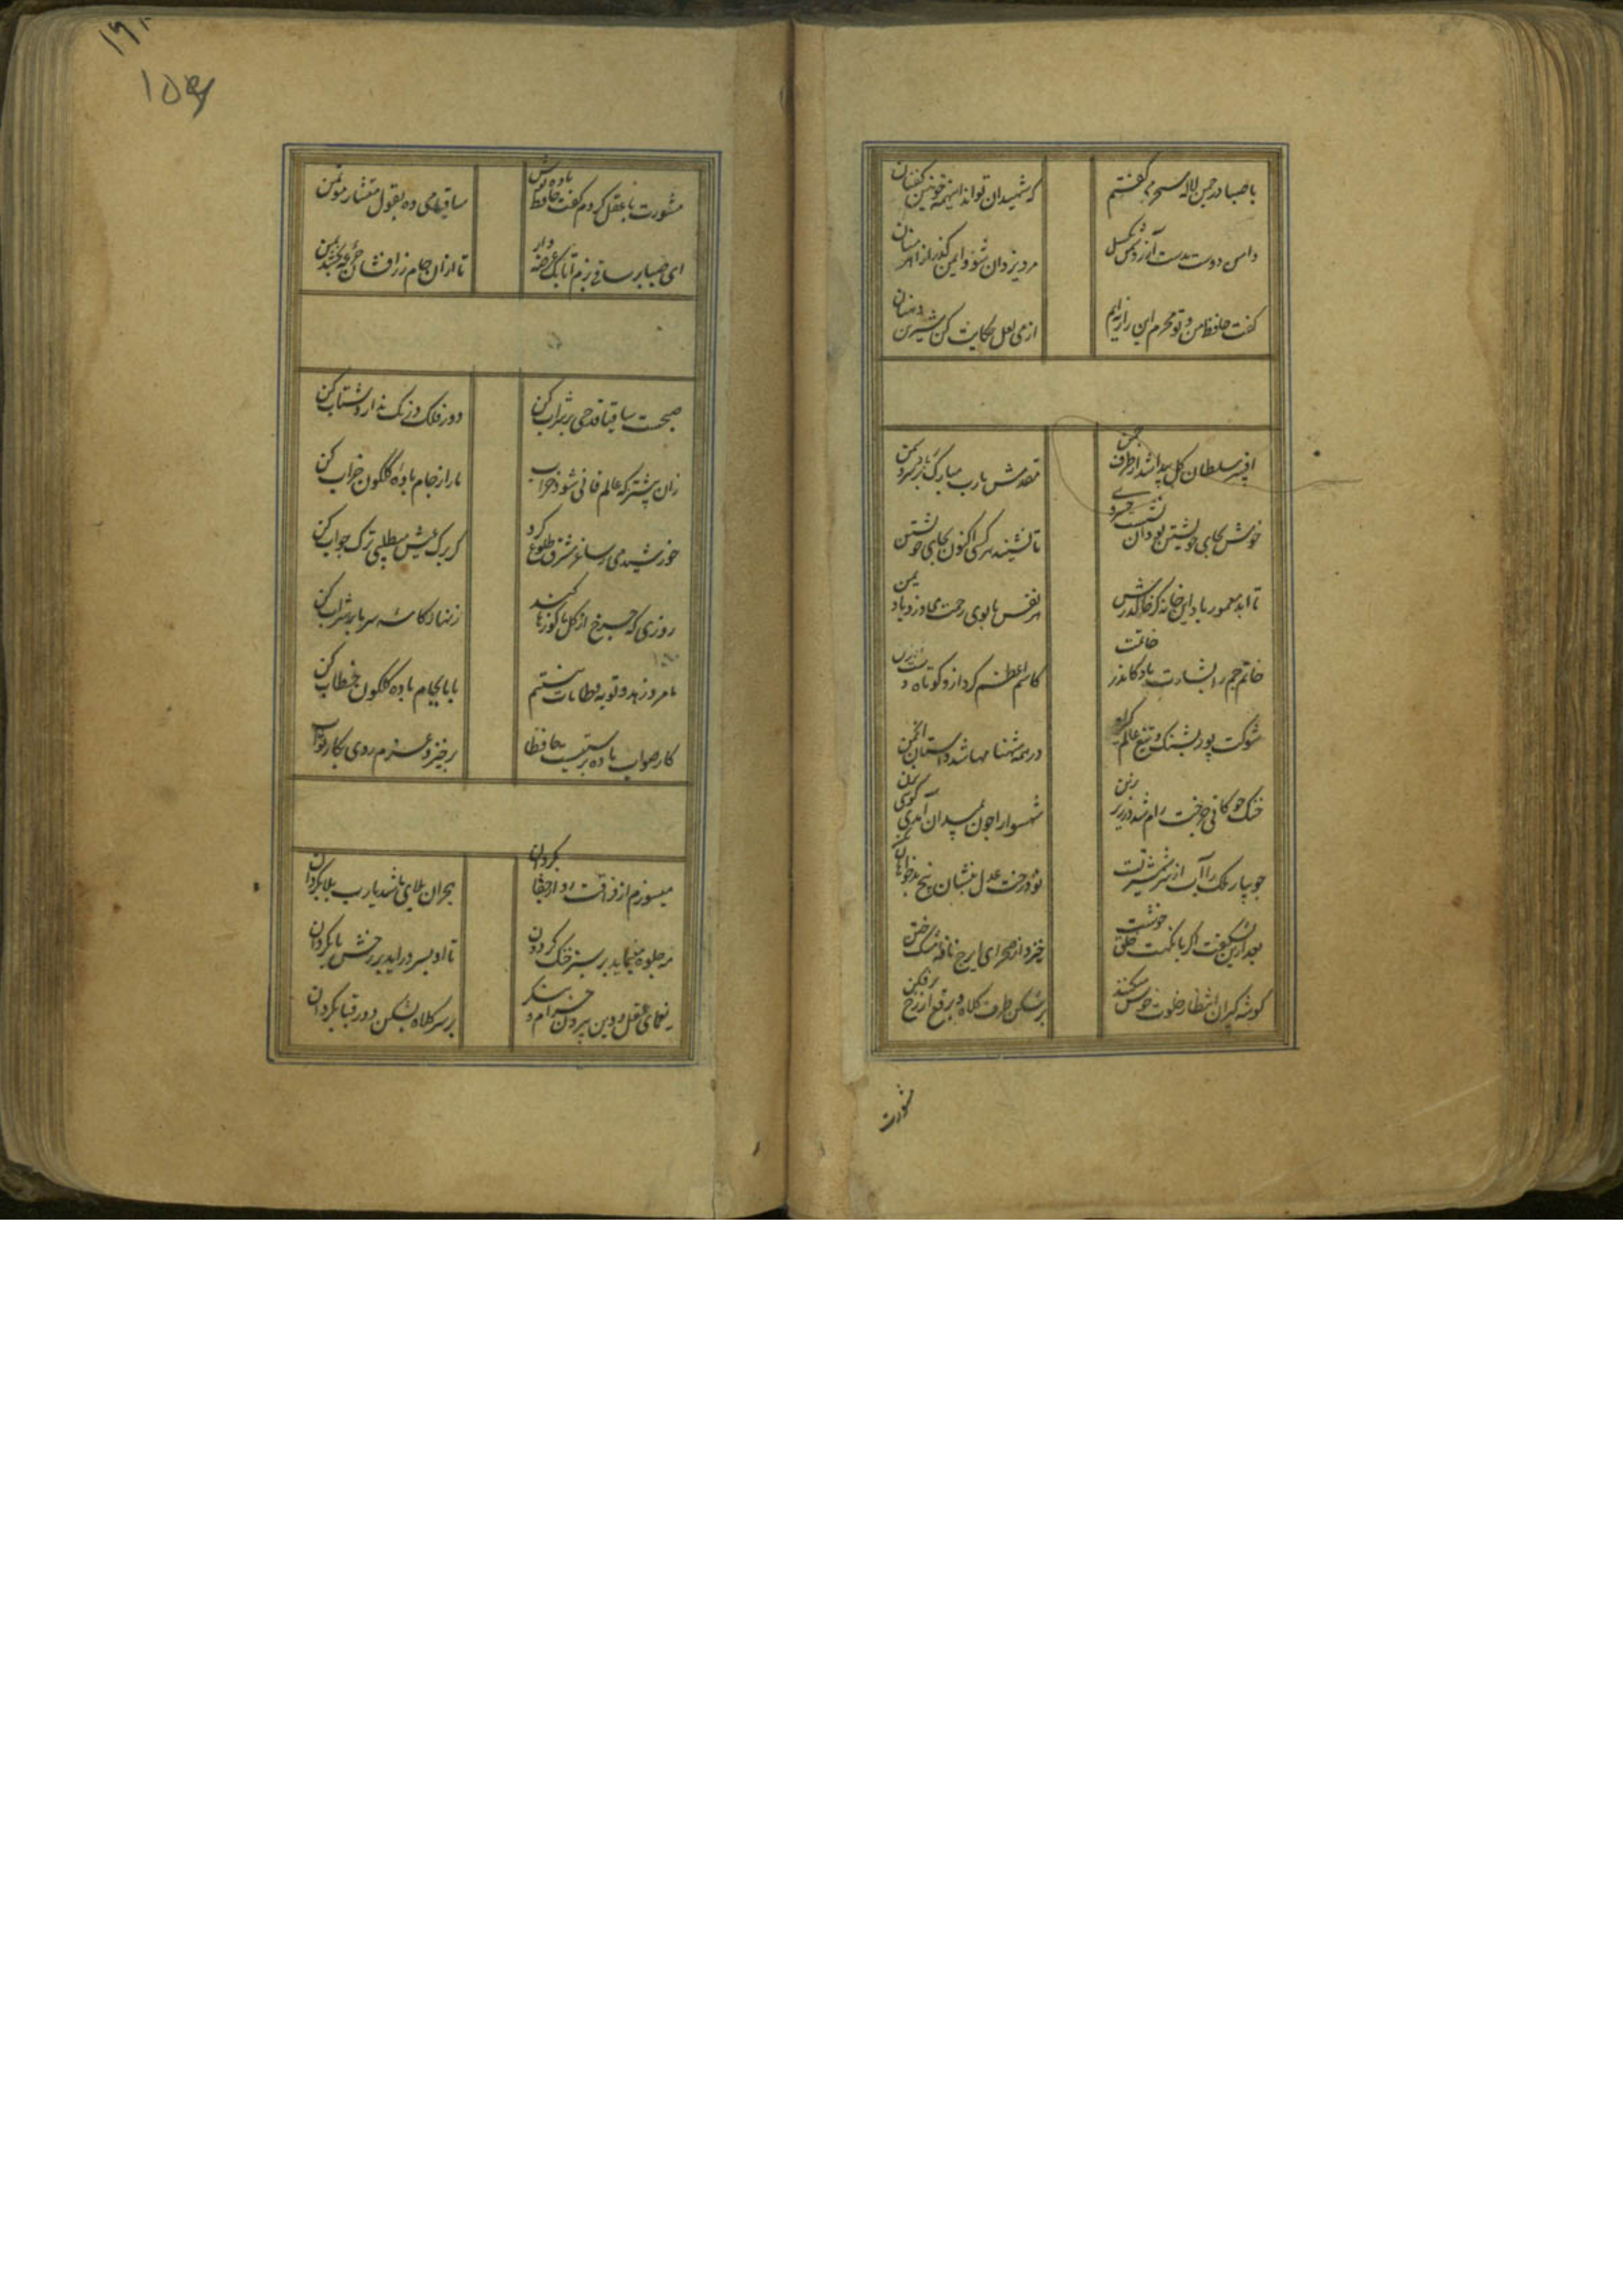 با صبا در چمن لاله سحر می گفتم
که شهیدان تواند اینهمه خونین کفنان
دامن دوست بدست آر و ز دشمن بگسل
مرد یزدان شو و ایمن گذر از اهرمنان
گفت حافظ من و تو محرم این راز نه ایم
از می لعل حکایت کن و شیرین دهنان
افسر سلطان گل پیدا شد از طرف چمن
مقدمش یارب مبارک باد بر سرو و سمن
خوش بجای خویشتن بود این نشست خسروی
تا نشیند هر کسی اکنون بجای خویشتن
تا ابد معمور باد این خانه کز خاک درش
هر نفس با بوی رحمت می وزد باد یمن
خاتم جم را بشارت ده بحسن خاتمت
کاسم اعظم کرد ازو کوتاه دست اهرمن
شوکت پور پشنگ و تیغ عالم گیر او
در همه شهنامها شد داستان انجمن
خنگ چوکانی چرخت رام شد در زیر زین
شهسوارا چون بمیدان آمدی گویی بزن
جویبار ملک را آب از سر شمشیر تست
تو درخت عدل بنشان بیخ بدخواهان بکن
بعد ازین نشکفت اگر با نکهت خلق خوشت
خیزد از صحرای ایرج نافه مشک ختن
گوشه گیران انتظار جلوه خوش میکنند
برشکن طرف کلاه و برقع از رخ برفکن
مشورت
۱۵۶
مشورت با عقل کردم گفت حافظ باده نوش
ساقیا می ده بقول مستشار موتمن
ای صبا بر ساقی بزم اتابک عرضه دار
تا از ان جام زر افشان جرعه بخشد بمن
صبحست ساقیا قدحی پر شراب کن
دور فلک درنگ ندارد شتاب کن
زان پیشتر که عالم فانی شود خراب
ما را ز جام باده گلگون خراب کن
خورشید می ز ساغر مشرق طلوع کرد
گر برگ عیش میطلبی ترک خواب کن
روزی که چرخ از گل ما کوزها کند
زنهار کاسه سر ما پر شراب کن
ما مرد زهد و توبه و طامات نیستیم
با ما بجام باده گلگون خطاب کن
کار صواب باده پرستیست حافظا
برخیز و عزم روی بکار صواب کن
میسوزم از فراقت رو از جفا بگردان
هجران بلای ما شد یارب بلا بگردان
مه جلوه مینماید بر سبز خنگ گردون
تا او بسر دراید بر رخش پا بگردان
یغمای عقل و دین را بیرون خرام و بنگر
بر سر کلاه بشکن در بر قبا بگردان